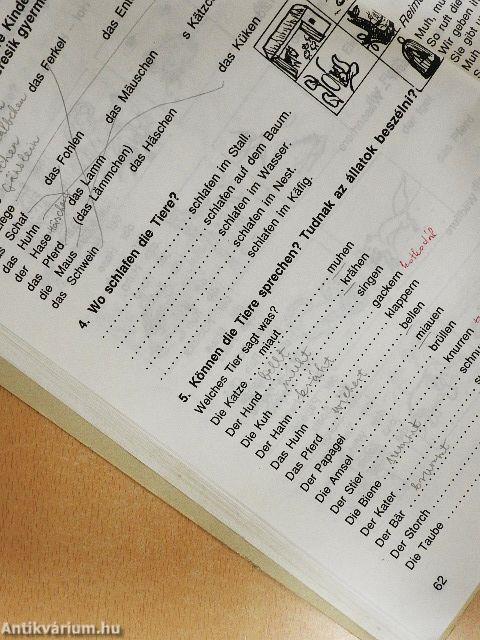 das Ferkel
das Küken
das Mäuschen
das Häschen
das Fohlen
das Lamm
(das Lämmchen)
das Schaf
das Huhn
der Hase
das Pferd
die Maus
das Schwein
4. Wo schlafen die Tiere?
schlafen im Stall.
schlafen auf dem Baum.
schlafen im Wasser.
schlafen im Nest.
schlafen im Käfig.
5. Können die Tiere sprechen? Tudnak az állatok beszélni?
Welches Tier sagt was?
Die Katze miaut
Der Hund bellt
Die Kuh muht
Der Hahn kräht
Das Huhn
Das Pferd wiehert
Der Papagei
Die Amsel
Der Stier
Die Biene summt
Der Kater
Der Bär brummt
Der Storch
Die Taube
muhen
krähen
singen
gackern kotkodál
klappern
bellen
miauen
brüllen
knurren
62
Muh, mu
So ruft die
Wir geben ih
Sie gibt u
Muh
Antikvárium.hu